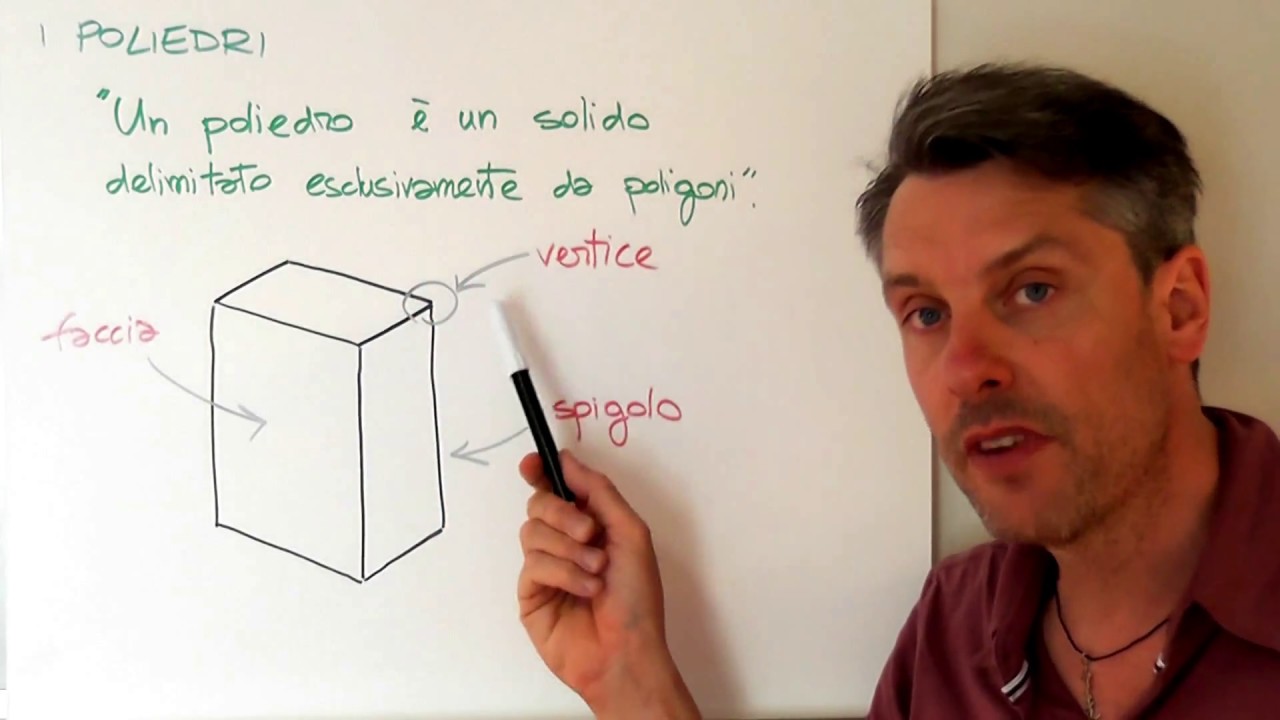 I POLIEDRI
"Un poliedro è un solido
delimitato esclusivamente da poligoni".
vertice
faccia
spigolo